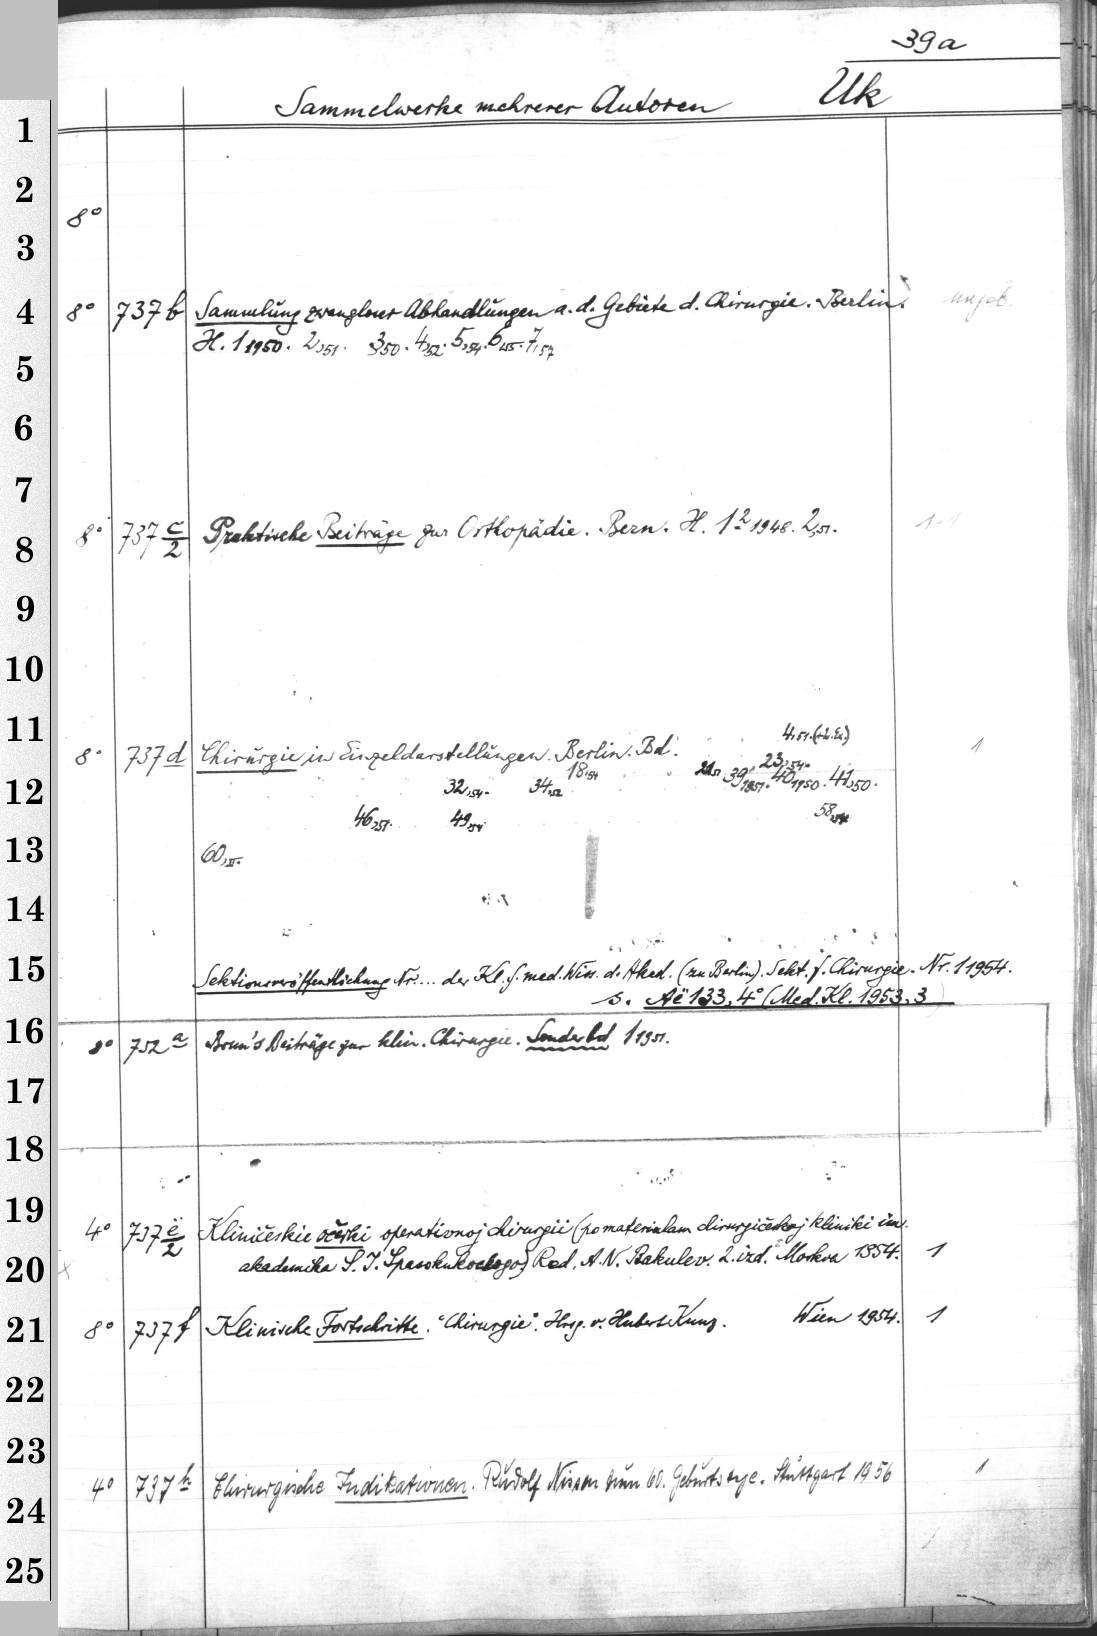 39a
Sammelwerke mehrerer Autoren Uk
1
2
8°
3
4 8° 737 b Sammlung zwangloser Abhandlungen a. d. Gebiete d. Chirurgie. Berlin. ungeb.
H. 1 1950. 2,51. 3,50. 4,52. 5,54. 6,55. 7,57
5
6
7
8 8° 737 c/2 Praktische Beiträge zur Orthopädie. Bern. H. 1² 1948. 2,51.
9
10
4,51.
11 8° 737 d Chirurgie in Einzeldarstellungen. Berlin. Bd. 1
18,54 23,54. 39 1951. 40 1950. 41,50.
12 32,54. 34,52
46,51. 49,54 58,54
13 60,
14
15 Sektionsveröffentlichung Nr.... der Kl. f. med. Wiss. d. Akad. (zu Berlin). Sekt. f. Chirurgie. Nr. 1 1954.
s. Aë 133, 4° (Med. Kl. 1953, 3)
16 8° 752 a Brun's Beiträge zur klin. Chirurgie. Sonderbd 1 1951.
17
18
19 4° 737 ë/2 Kliničeskie očerki operativnoj chirurgii (po materialam chirurgičeskoj kliniki im.
20 akademika S. I. Spasokukockogo) Red. A. N. Bakulev. 2. izd. Moskva 1954. 1
21 8° 737 f Klinische Fortschritte. "Chirurgie". Hrsg. v. Hubert Kunz. Wien 1954. 1
22
23
4° 737 h Chirurgische Indikationen. Rudolf Nissen zum 60. Geburtstage. Stuttgart 1956 1
24
25